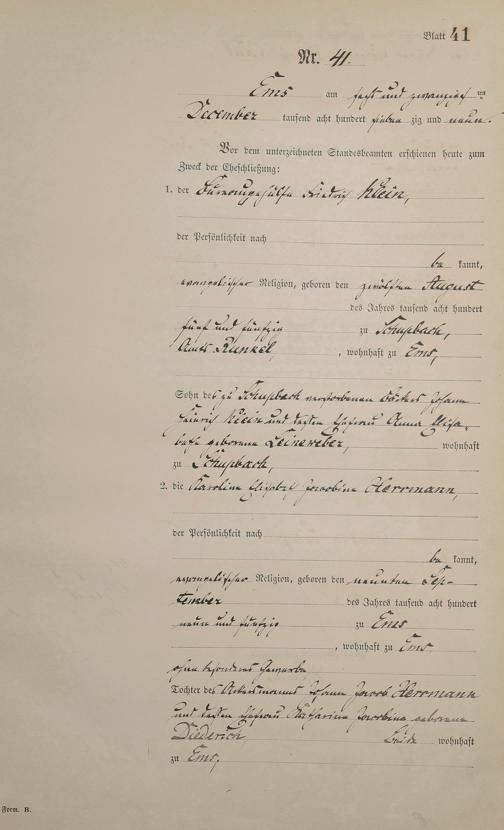 Blatt 41
Nr. 41.
Ems am sechs und zwanzigsten
December tausend acht hundert sieben zig und neun.
Vor dem unterzeichneten Standesbeamten erschienen heute zum
Zweck der Eheschließung:
1. der Bureaugehülfe Friedrich Klein,
der Persönlichkeit nach
be kannt,
evangelischer Religion, geboren den zwölften August
des Jahres tausend acht hundert
fünf und fünfzig zu Schupbach,
Amts Runkel, , wohnhaft zu Ems,
Sohn des zu Schupbach verstorbenen Johann
Heinrich Klein und dessen Ehefrau Anna Elisa-
beth geborene Leineweber, wohnhaft
zu Schupbach,
2. die Karoline Elisabeth Jacobine Herrmann,
der Persönlichkeit nach
be kannt,
evangelischer Religion, geboren den neunten Sep-
tember des Jahres tausend acht hundert
neun und fünfzig zu Ems
, wohnhaft zu Ems
ohne besonderes Gewerbe
Tochter des Ackersmanns Johann Jacob Herrmann
und dessen Ehefrau Katharina Jacobine geborene
Diederich Beide wohnhaft
zu Ems,
Form. B.